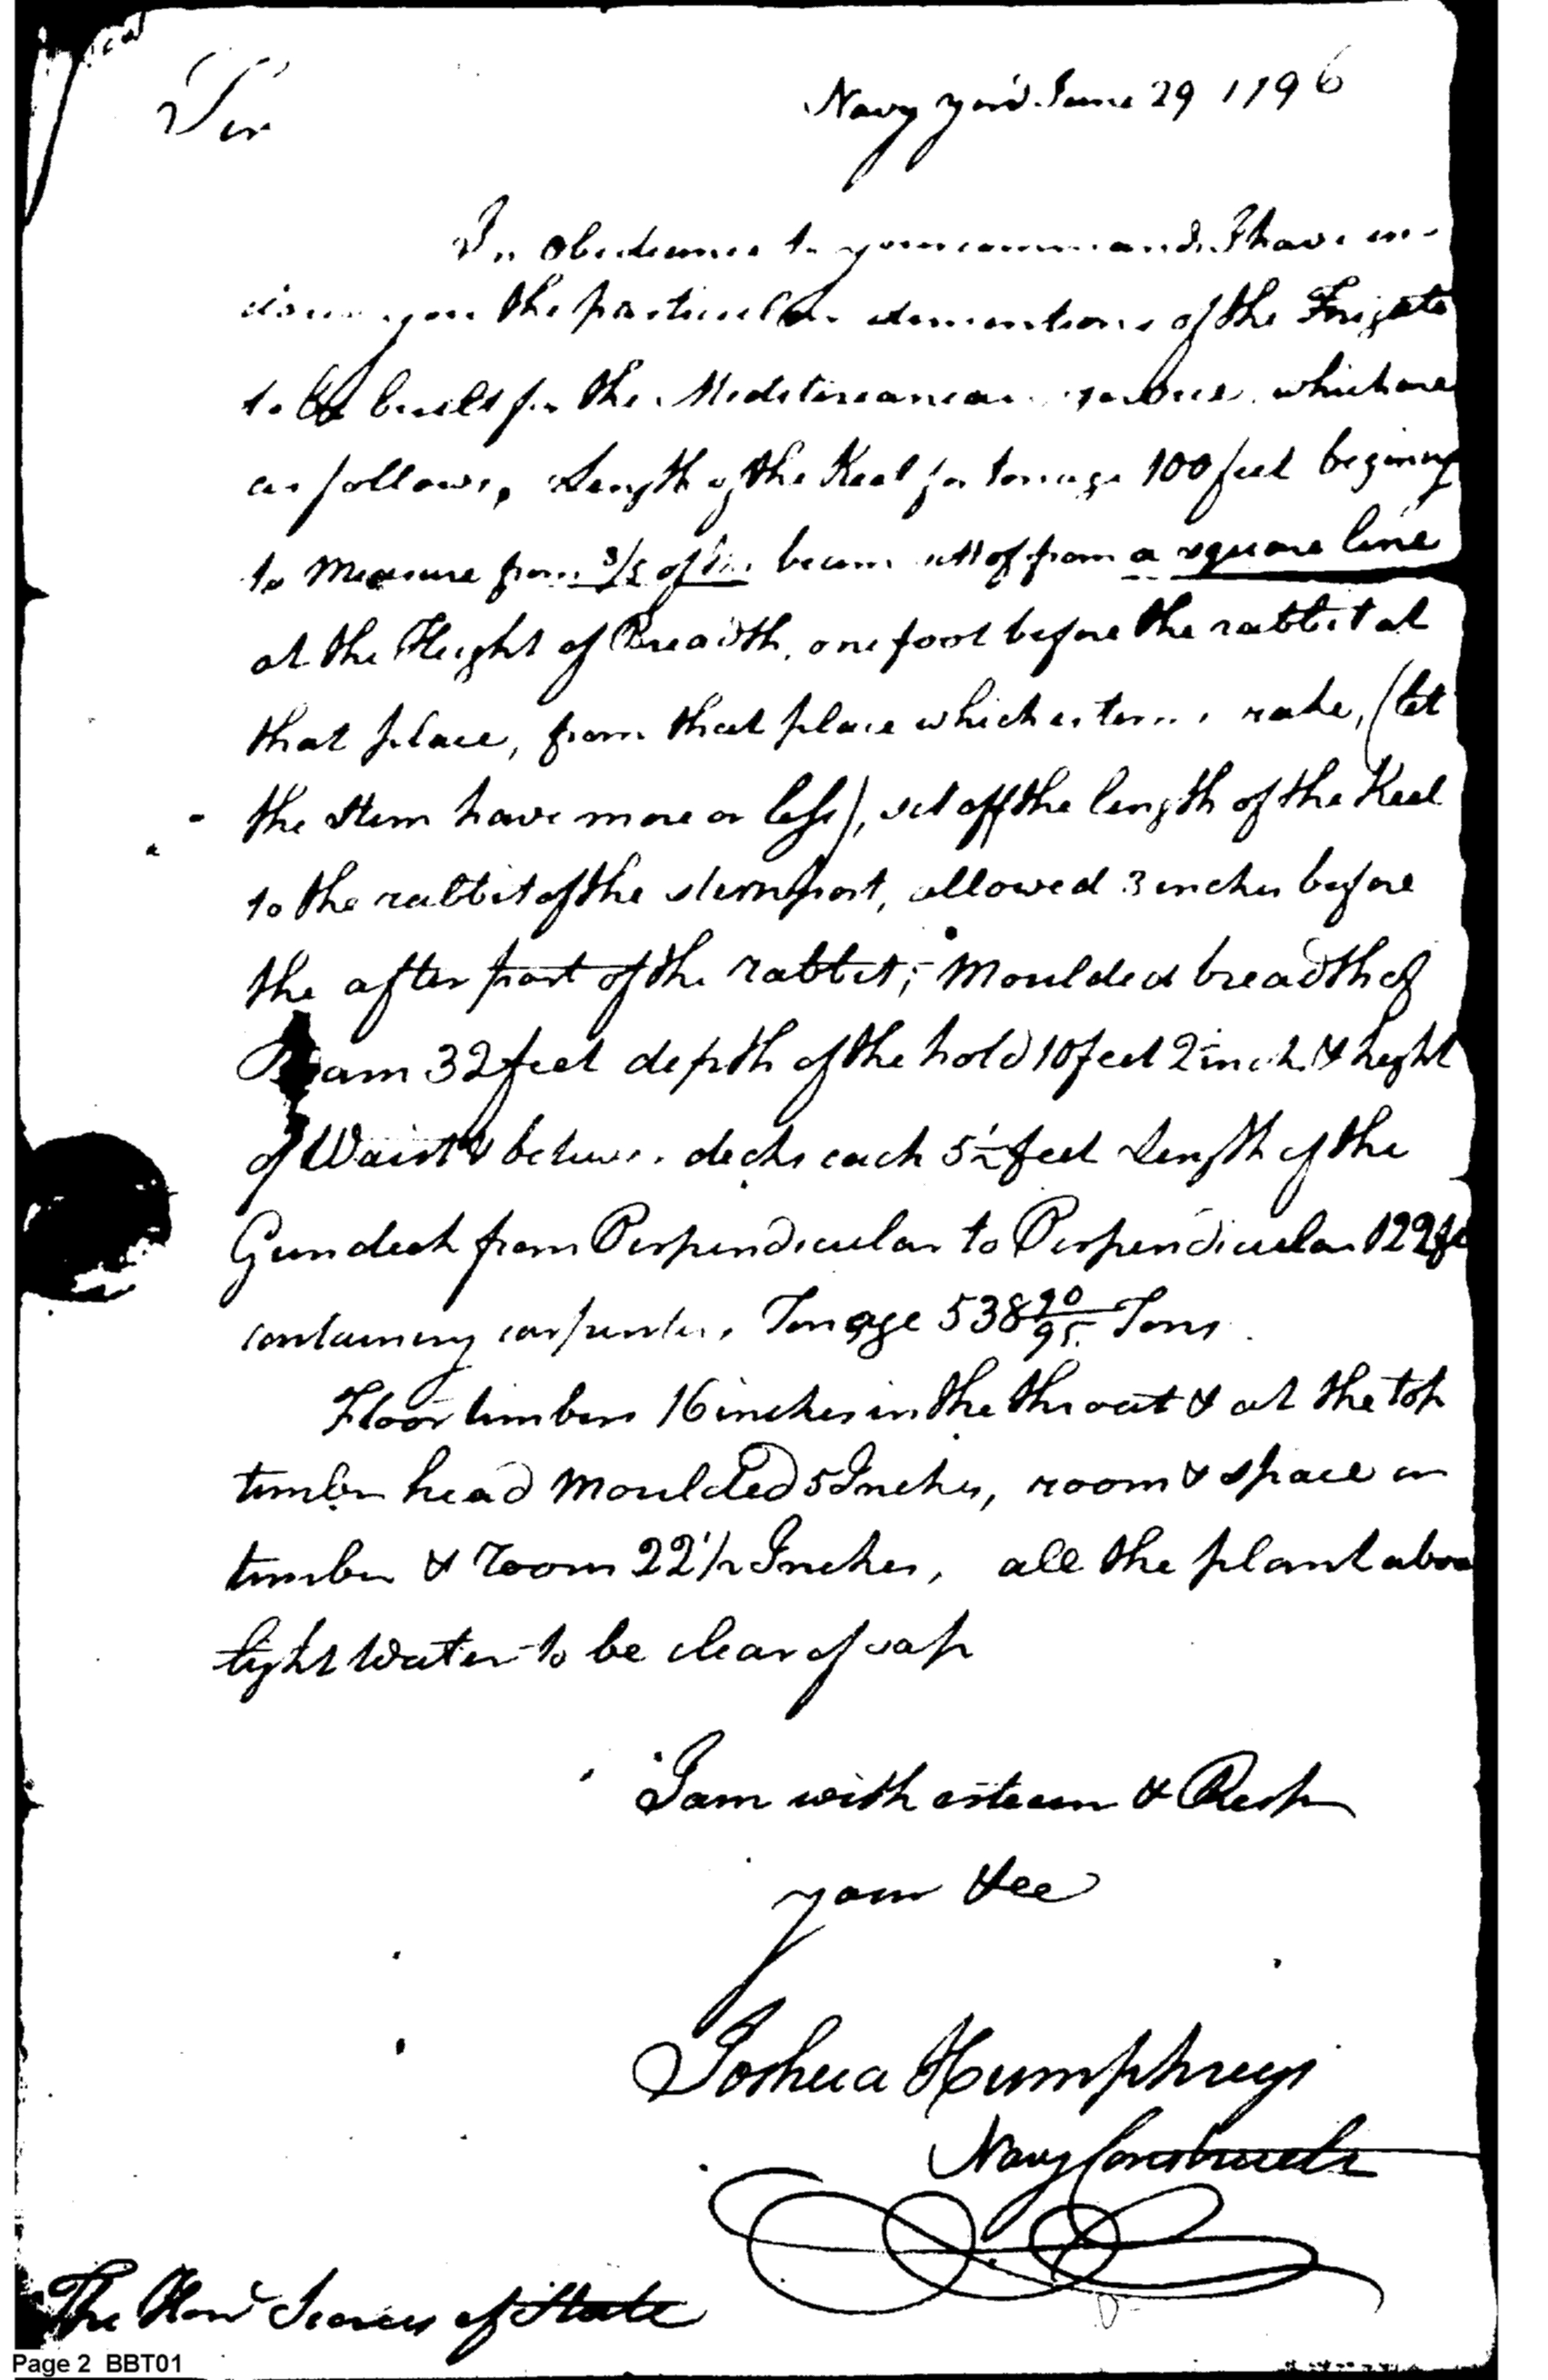 Sir
Navy yard June 29 1796
In obedience to your commands I have in-
you the particular dementions of the Frigate
to be built for the Mediteranean which are
as follows, Length of the Keel for tonage 100 feet begining
to Measure from 3/5 of the beam sett of from a square line
at the Height of Breadth, one foot before the rabbit at
that place, from that place which is term rake, (let
the Stem have more or less), set off the length of the Keel
to the rabbit of the sternpost, allowed 3 inches before
the after part of the rabbit; Moulded breadth of
Beam 32 feet depth of the hold 10 feet 2 inch & hight
of Waist & betwe decks each 5½ feet Length of the
Gundeck from Perpendicular to Perpendicular 122 fe
containing carpenters Tonage 538 20/95 Tons
Floor timbers 16 inches in the throat & at the top
timber head Moulded 5 Inches, room & space or
timber & room 22 1/2 Inches, all the plank above
light Water to be clear of sap
I am with esteem & Resp
your &ee
Joshua Humphreys
Navy Constructr
The Hon Secrey of State
Page 2 BBT01